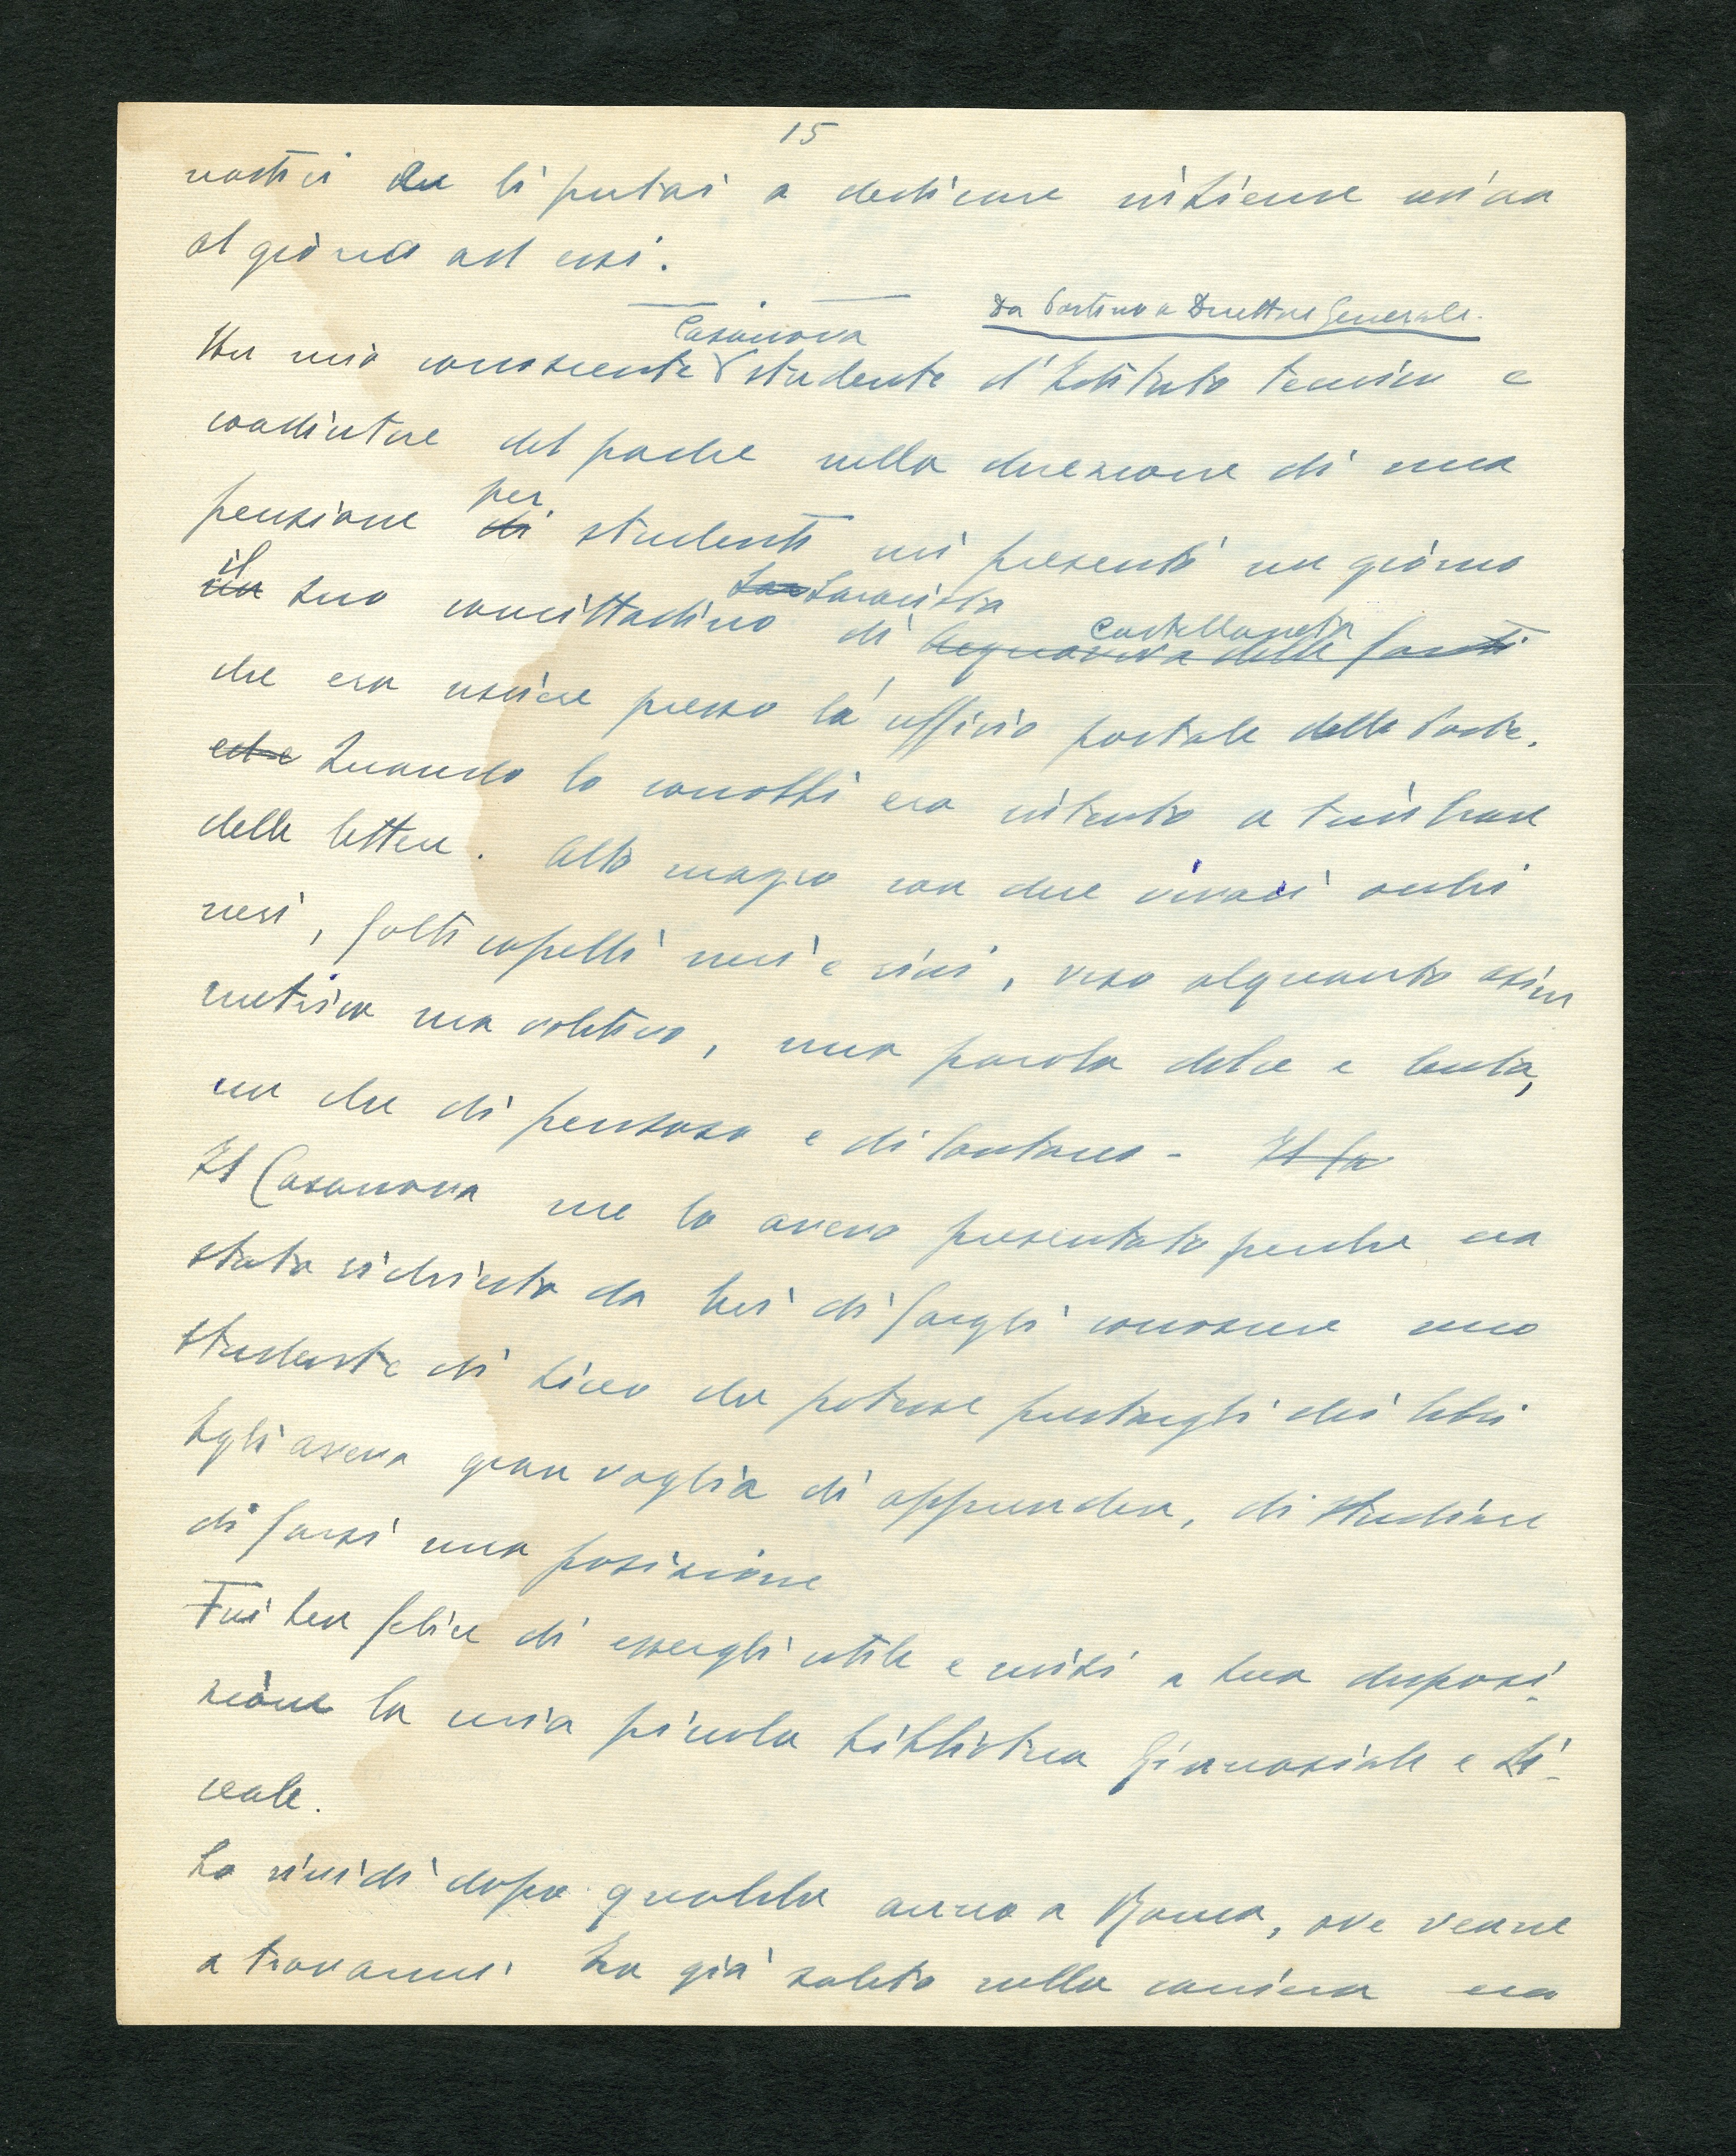 15
nostri che li portai a dedicare insieme
al giorno ad essi.
Da Postino a Direttore Generale.
Casanova
Un mio conoscente studente d'Istituto tecnico e
coadiutore del padre nella direzione di una
per
pensione di studenti mi presentò un giorno
il
un suo concittadino di
Castellaneta
Acquaviva delle Fonti
che era usciere presso la ufficio postale delle Poste.
Quando lo conobbi era intento a timbrare
delle lettere. Alto magro con due vivaci occhi
neri, folti capelli neri e ricci, viso alquanto asim
metrico ma volitivo, una parola dolce e lenta,
un che di pensoso e di lontano - Il Ca
Il Casanova me lo aveva presentato perchè era
stato richiesto da lui di fargli conoscere uno
studente di liceo che potesse prestargli dei libri
Egli aveva gran voglia di apprendere, di studiare
di farsi una posizione
Fui ben felice di essergli utile e misi a sua disposi-
zione la mia piccola biblioteca Ginnasiale e Li-
ceale.
Lo rividi dopo qualche anno a Roma, ove venne
a trovarmi. Era già salito nella carriera era